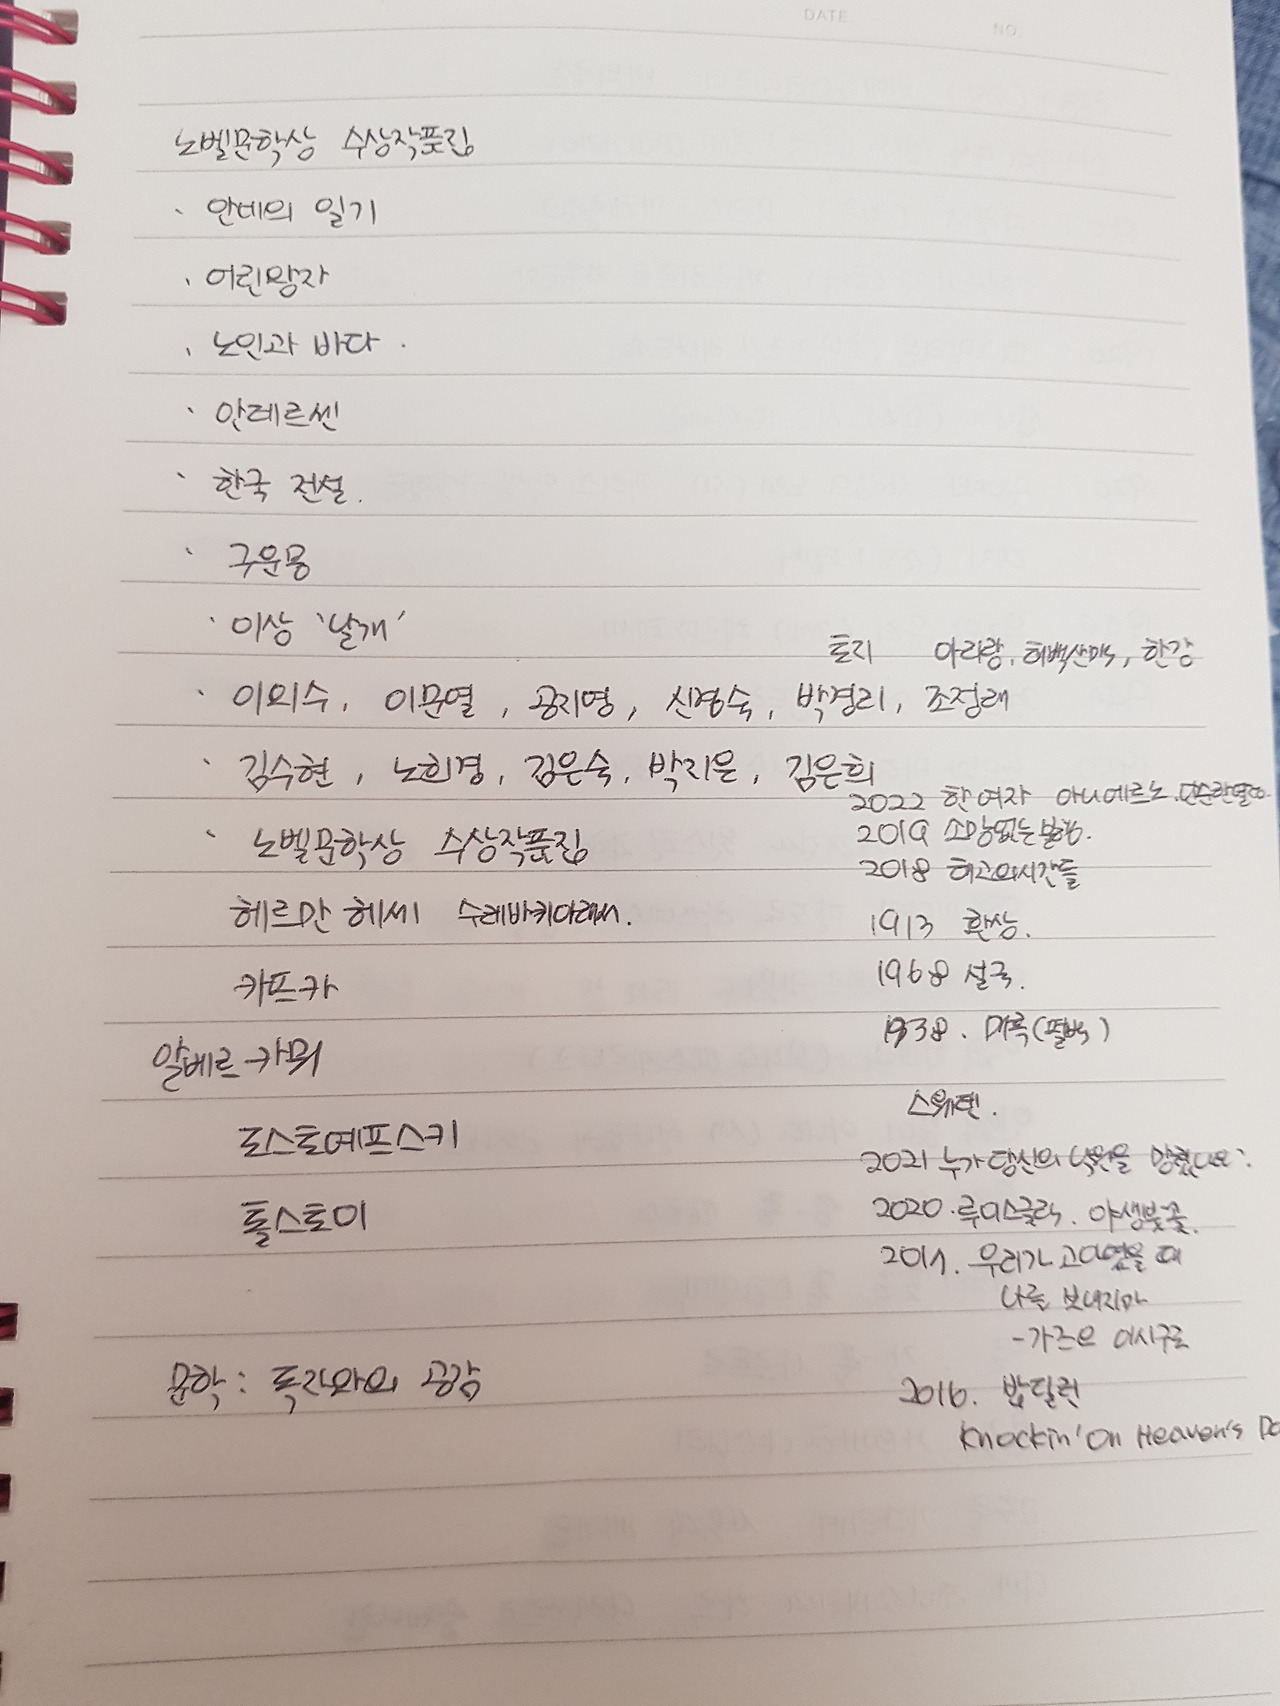 DATE
NO.
노벨문학상 수상작품집
· 안네의 일기
· 어린왕자
· 노인과 바다.
· 안데르센
· 한국 전설.
· 구운몽
· 이상 '날개'
토지 아리랑, 태백산맥, 한강
· 이외수, 이문열, 공지영, 신경숙, 박경리, 조정래
· 김수현, 노희경, 김은숙, 박지은, 김은희
2022 한 여자 아니에르노. 단순한열정.
2019 소망없는불행.
· 노벨문학상 수상작품집
2018 태고의시간들
헤르만 헤세 수레바퀴아래서.
1913 환상.
카프카
1968 설국.
1938. 대륙(펄벅)
알베르 카뮈
스웨덴.
도스토예프스키
2021 누가 당신의 낙원을
톨스토이
2020. 루이스글릭. 야생붓꽃.
2017. 우리가 고아였을 때
나를 보내지마
- 가즈오 이시구로
문학: 독자와의 공감
2016. 밥딜런
Knockin' On Heaven's Do